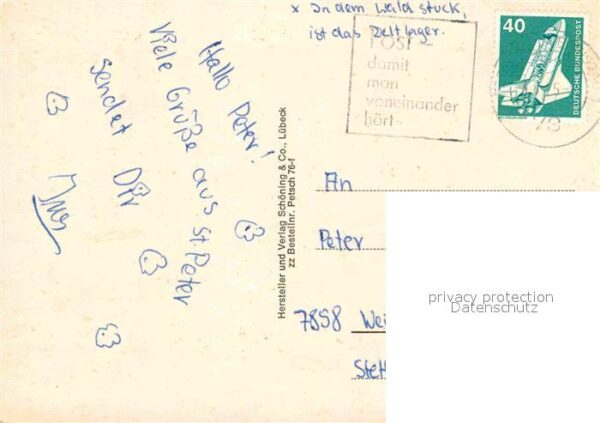 x In dem Waldstück,
ist das Zeltlager.
Hallo Peter!
Viele Grüße aus St. Peter
sendet Dir
POST
damit
man
voneinander
hört
40
DEUTSCHE BUNDESPOST
78
Hersteller und Verlag Schöning & Co., Lübeck
zz Bestellnr. Petsch 76-f
An
Peter
7858 Wei
Stett
privacy protection
Datenschutz